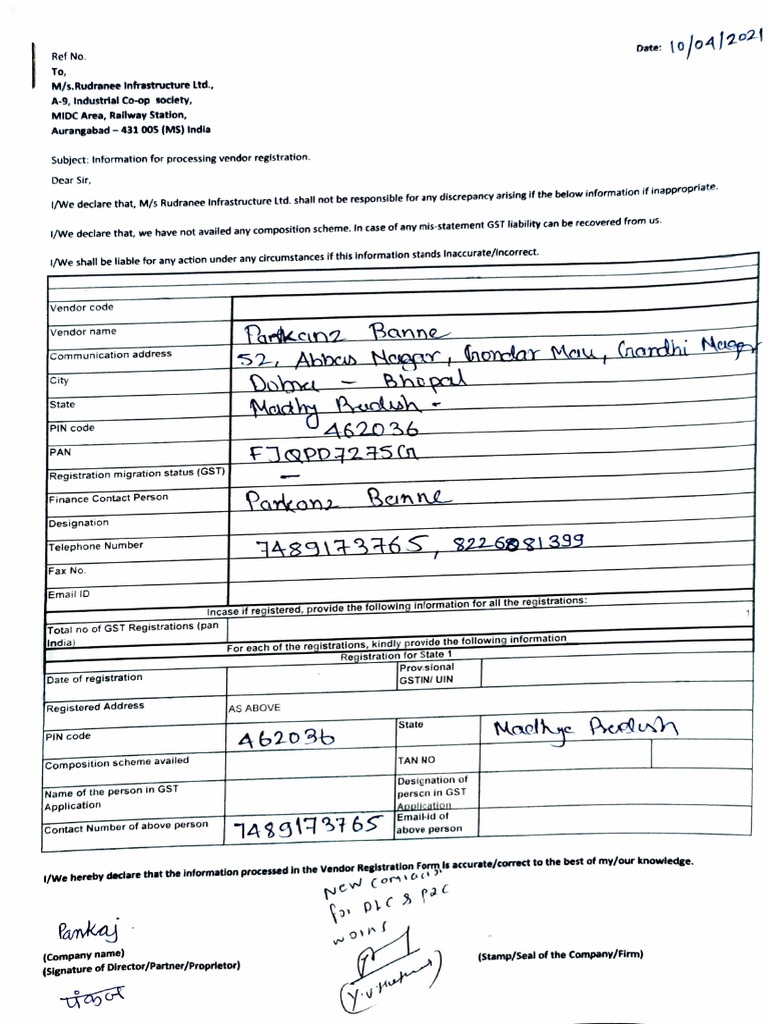 Date: 10/04/2021
Ref No.
To,
M/s.Rudranee Infrastructure Ltd.,
A-9, Industrial Co-op society,
MIDC Area, Railway Station,
Aurangabad – 431 005 (MS) India
Subject: Information for processing vendor registration.
Dear Sir,
I/We declare that, M/s Rudranee Infrastructure Ltd. shall not be responsible for any discrepancy arising if the below information if inappropriate.
I/We declare that, we have not availed any composition scheme. In case of any mis-statement GST liability can be recovered from us.
I/We shall be liable for any action under any circumstances if this information stands Inaccurate/Incorrect.
Vendor code
Vendor name Banne
Communication address 52, Abbas Nagar, Gondar Mau, Gandhi Nagar
City – Bhopal
State Madhy Pradesh -
PIN code 462036
PAN FJQPD7275G
Registration migration status (GST) –
Finance Contact Person Banne
Designation
Telephone Number 7489173765, 8226081399
Fax No.
Email ID
Incase if registered, provide the following information for all the registrations:
Total no of GST Registrations (pan India) 1
For each of the registrations, kindly provide the following information
Registration for State 1
Date of registration Provisional GSTIN/ UIN
Registered Address AS ABOVE
PIN code 462036 State Madhya Pradesh
Composition scheme availed TAN NO
Name of the person in GST Application Designation of person in GST Application
Contact Number of above person 7489173765 Email-id of above person
I/We hereby declare that the information processed in the Vendor Registration Form is accurate/correct to the best of my/our knowledge.
New
for DLC & PQC
Pankaj
(Company name)
(Signature of Director/Partner/Proprietor)
(Stamp/Seal of the Company/Firm)
पंकज